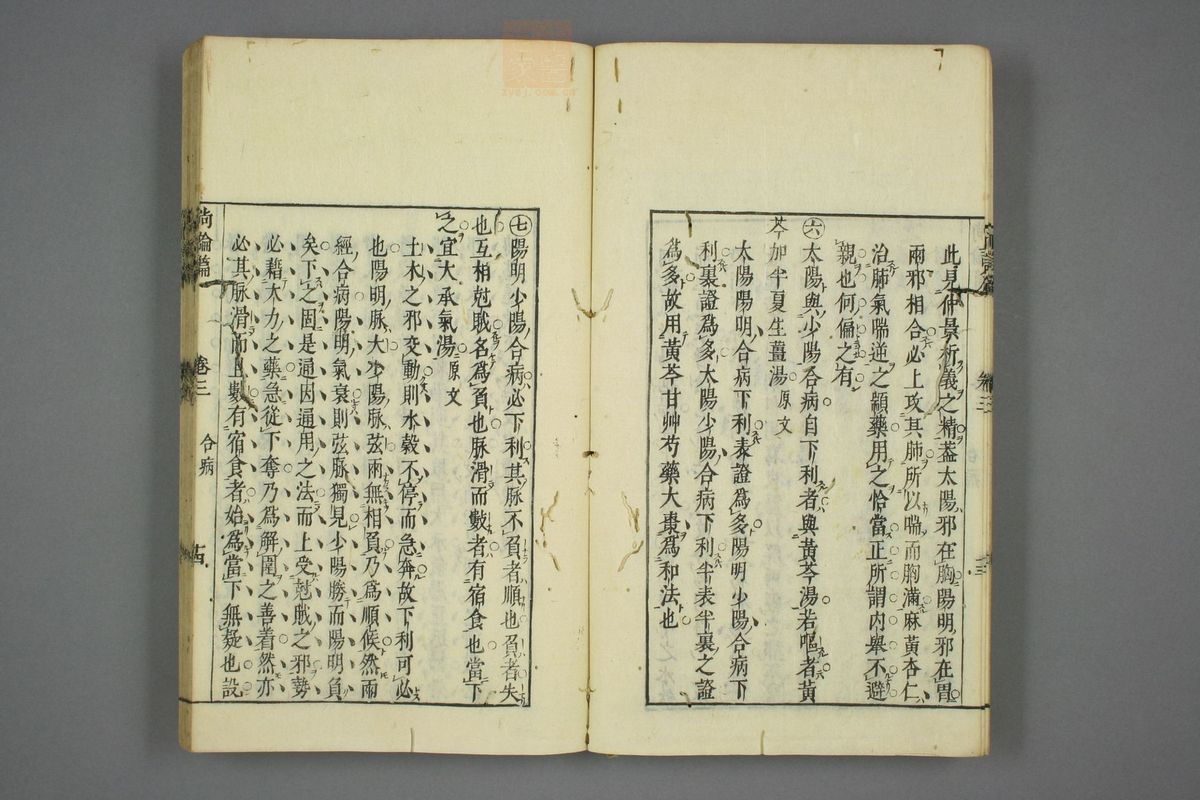 此見仲景析義之精蓋太陽邪在胸陽明邪在胃
兩邪相合必上攻其肺所以喘而胸滿麻黃杏仁
治肺氣喘逆之顓藥用之恰當正所謂内舉不避
親也何偏之有
㊅太陽與少陽合病自下利者與黃芩湯若嘔者黃
芩加半夏生薑湯原文
太陽陽明合病下利表證爲多陽明少陽合病下
利裏證爲多太陽少陽合病下利半表半裏之證
爲多故用黃芩甘艸芍藥大棗爲和法也
㊆陽明少陽合病必下利其脈不負者順也負者失
也互相尅賊名爲負也脈滑而數者有宿食也當下
之宜大承氣湯原文
土木之邪交動則水穀不停而急奔故下利可必
也陽明脈大少陽脈弦兩無相負乃爲順候然兩
經合病陽明氣衰則弦脈獨見少陽勝而陽明負
矣下之固是通因通用之法而上受尅賊之邪勢
必藉大力之藥急從下奪乃爲解圍之善着然亦
必其脈滑而且數有宿食者始爲當下無疑也設
尚論篇
卷三
合病
zydj.com.cn